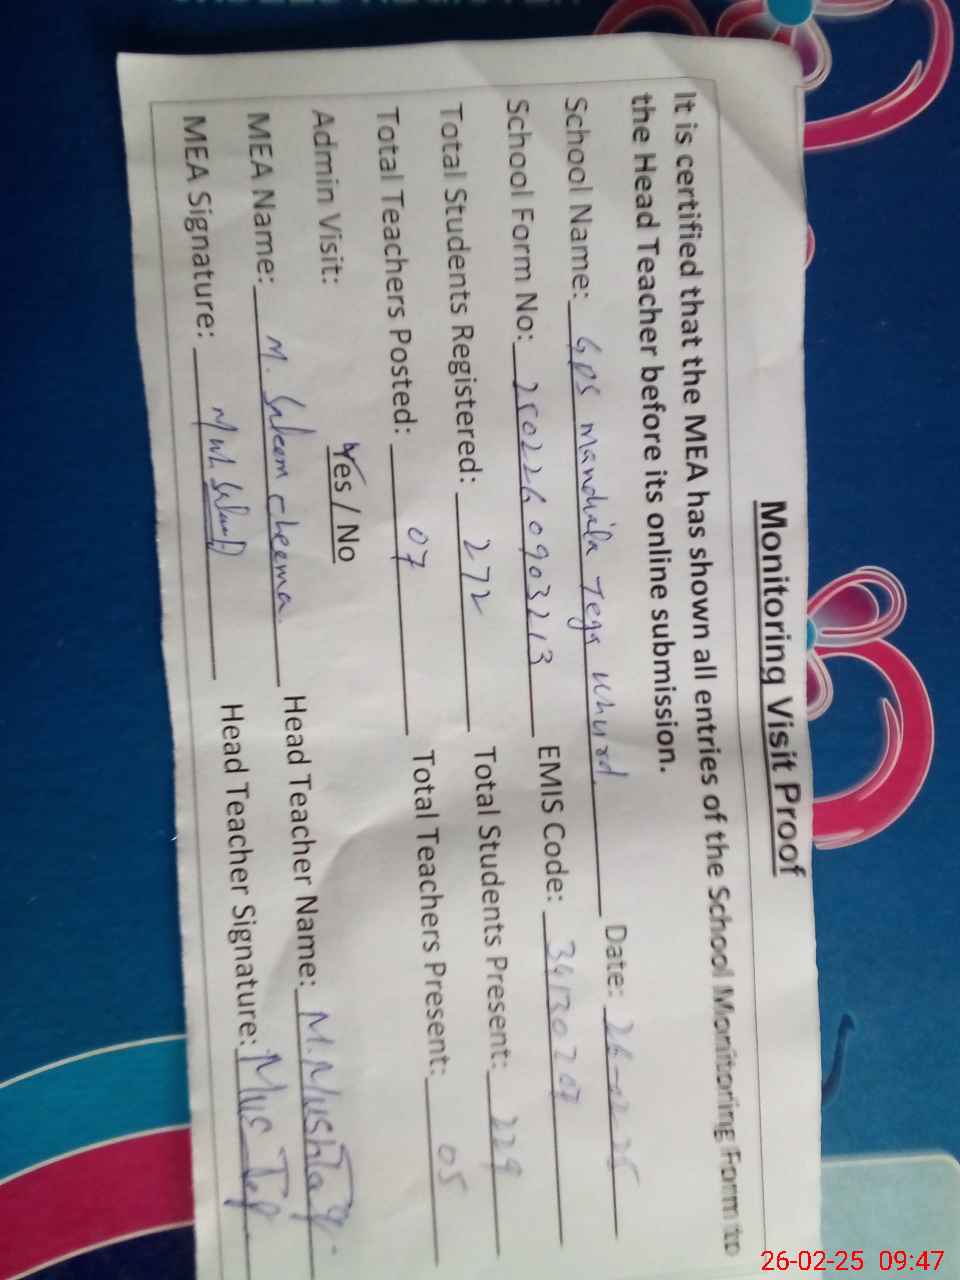 Monitoring Visit Proof
It is certified that the MEA has shown all entries of the School Monitoring Form to
the Head Teacher before its online submission.
School Name: GPS mandiala Tega Khurd Date: 26-02-25
School Form No: 250226090321 3 EMIS Code: 34130207
Total Students Registered: 272 Total Students Present: 229
Total Teachers Posted: 07 Total Teachers Present: 05
Admin Visit: Yes / No
MEA Name: M. Saleem cheema Head Teacher Name: M. Mushtaq
MEA Signature: Head Teacher Signature:
26-02-25 09:47